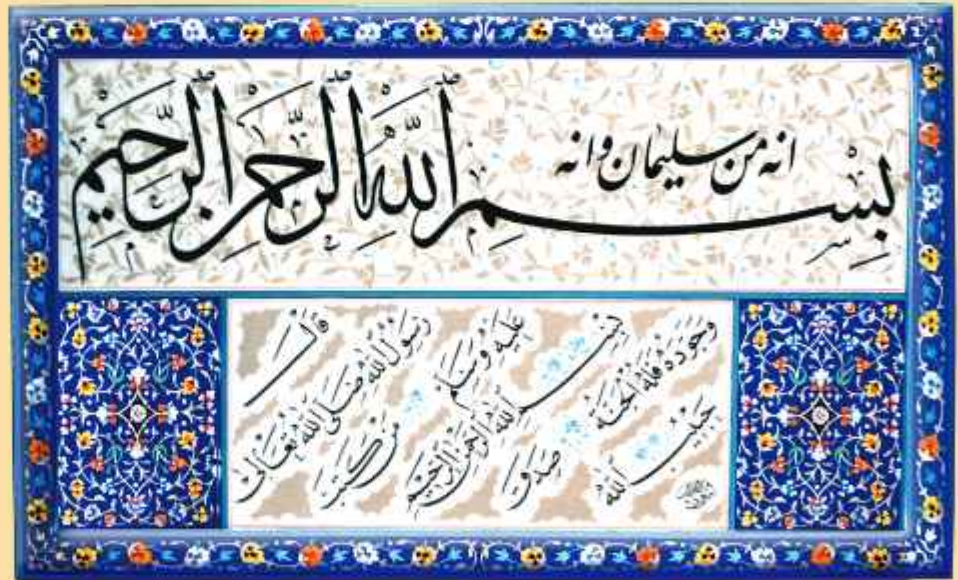 انه من سليمان وانه
بسم الله الرحمن الرحيم
قال
رسول الله صلى الله تعالى
عليه وسلم من كتب
بسم الله الرحمن الرحيم
وجوده فله الجنة صدق
حبيب الله